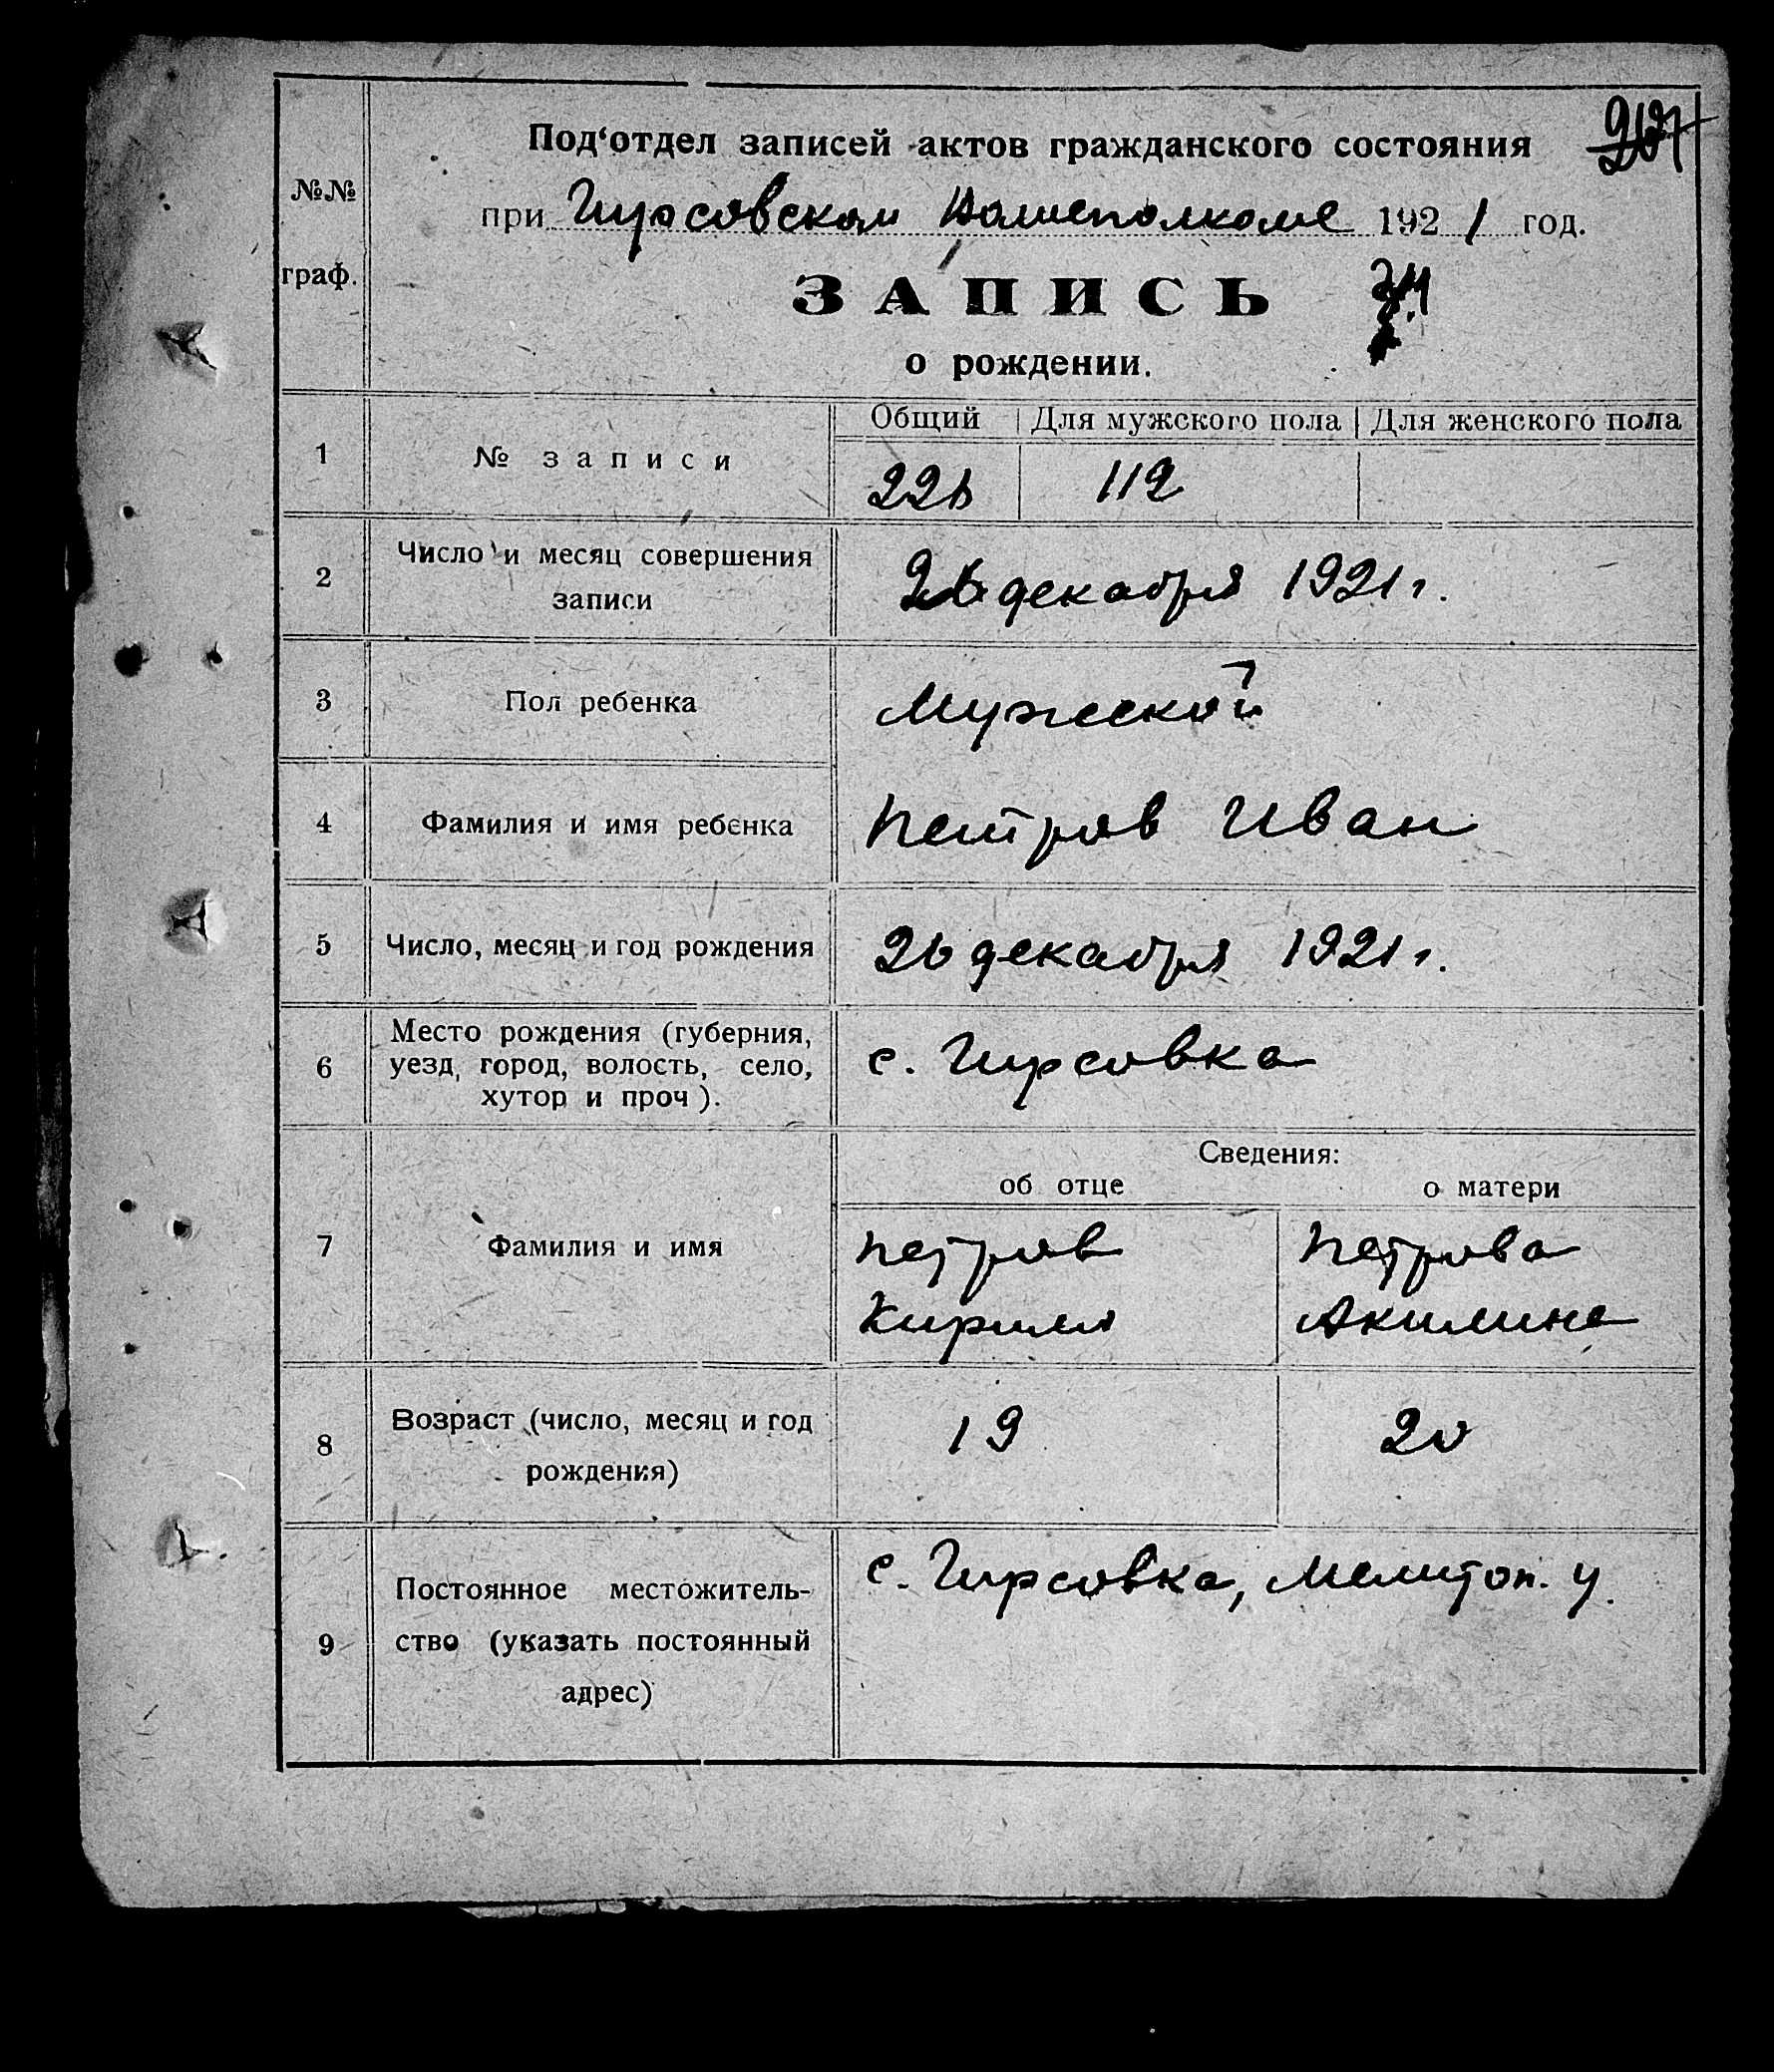 №№
граф.
Под‘отдел записей актов гражданского состояния
при Гирсовском Волисполкоме 1921 год.
ЗАПИСЬ
о рождении.
Общий Для мужского пола Для женского пола
1 № записи 226 112
2 Число и месяц совершения
записи
26 декабря 1921 г.
3 Пол ребенка Мужской
4 Фамилия и имя ребенка Петров Иван
5 Число, месяц и год рождения 26 декабря 1921 г.
6 Место рождения (губерния,
уезд, город, волость, село,
хутор и проч).
с. Гирсовка
Сведения:
об отце о матери
7 Фамилия и имя
Петров Петрова
Кирилл Акилина
8 Возраст (число, месяц и год
рождения)
19 20
9 Постоянное местожитель-
ство (указать постоянный
адрес)
с. Гирсовка, Мелитоп. у.